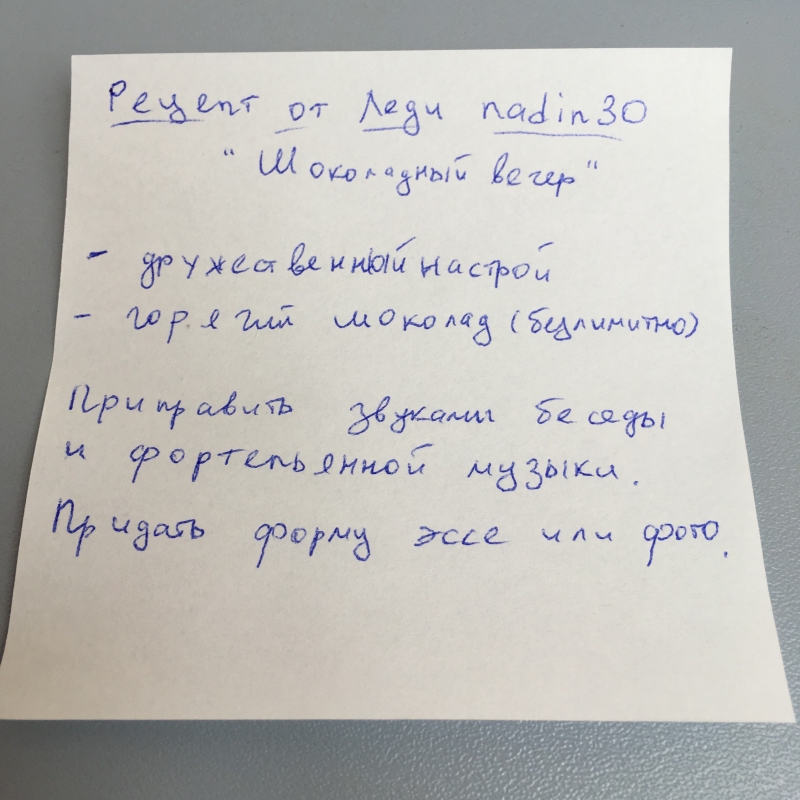 Рецепт от Леди nadin30
"Шоколадный вечер"
- дружественный настрой
- горячий шоколад (безлимитно)
Приправить звуками беседы
и фортепьянной музыки.
Придать форму эссе или фото.